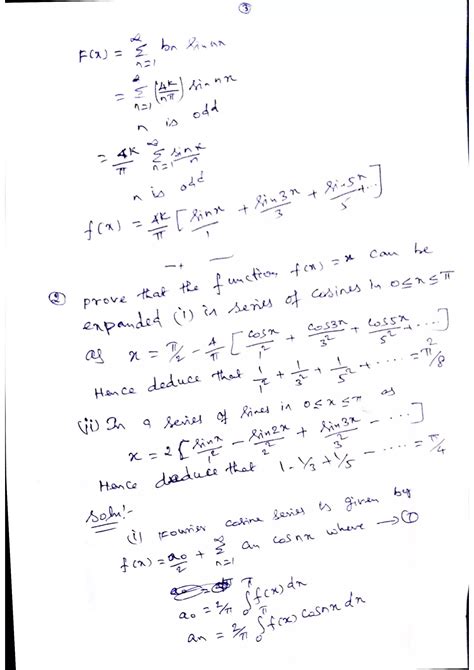 ③
F(x) = ∞ Σ n=1 bn sin nx
= ∞ Σ n=1 (4K/nπ) sin nx
n is odd
= 4K/π ∞ Σ n=1 sinx/n
n is odd
f(x) = 4K/π [ sinx/1 + sin3x/3 + sin5x/5 + ..]
② prove that the function f(x) = x can be
expanded (i) is series of Cosines in 0≤x≤π
as x = π/2 - 4/π [ cosx/1² + cos3x/3² + cos5x/5² + ...]
Hence deduce that 1/1² + 1/3² + 1/5² + .... = π²/8
(ii) In a series of sines in 0≤x≤π as
x = 2 [ sinx/1² - sin2x/2² + sin3x/3² - ...]
Hence deduce that 1 - 1/3 + 1/5 - .... = π/4
Soln:-
(i) Fourier cosine series is given by
f(x) = a0/2 + ∞ Σ n=1 an cosnx where → ①
a0 = 2/π ∫0^π f(x) dx
an = 2/π ∫0^π f(x) cosnx dx